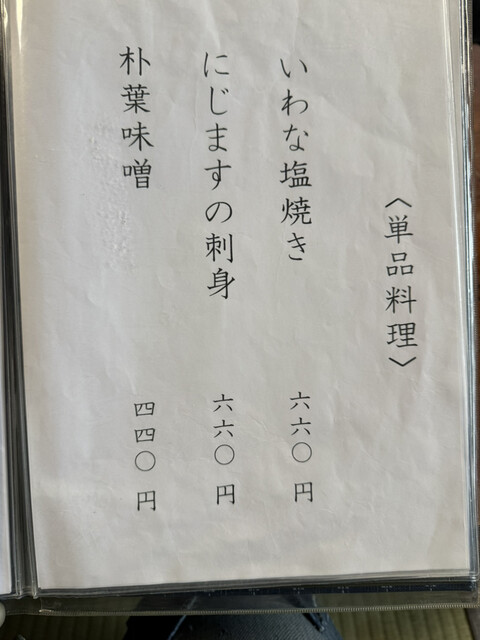 〈単品料理〉
いわな塩焼き 六六〇円
にじますの刺身 六六〇円
朴葉味噌 四四〇円